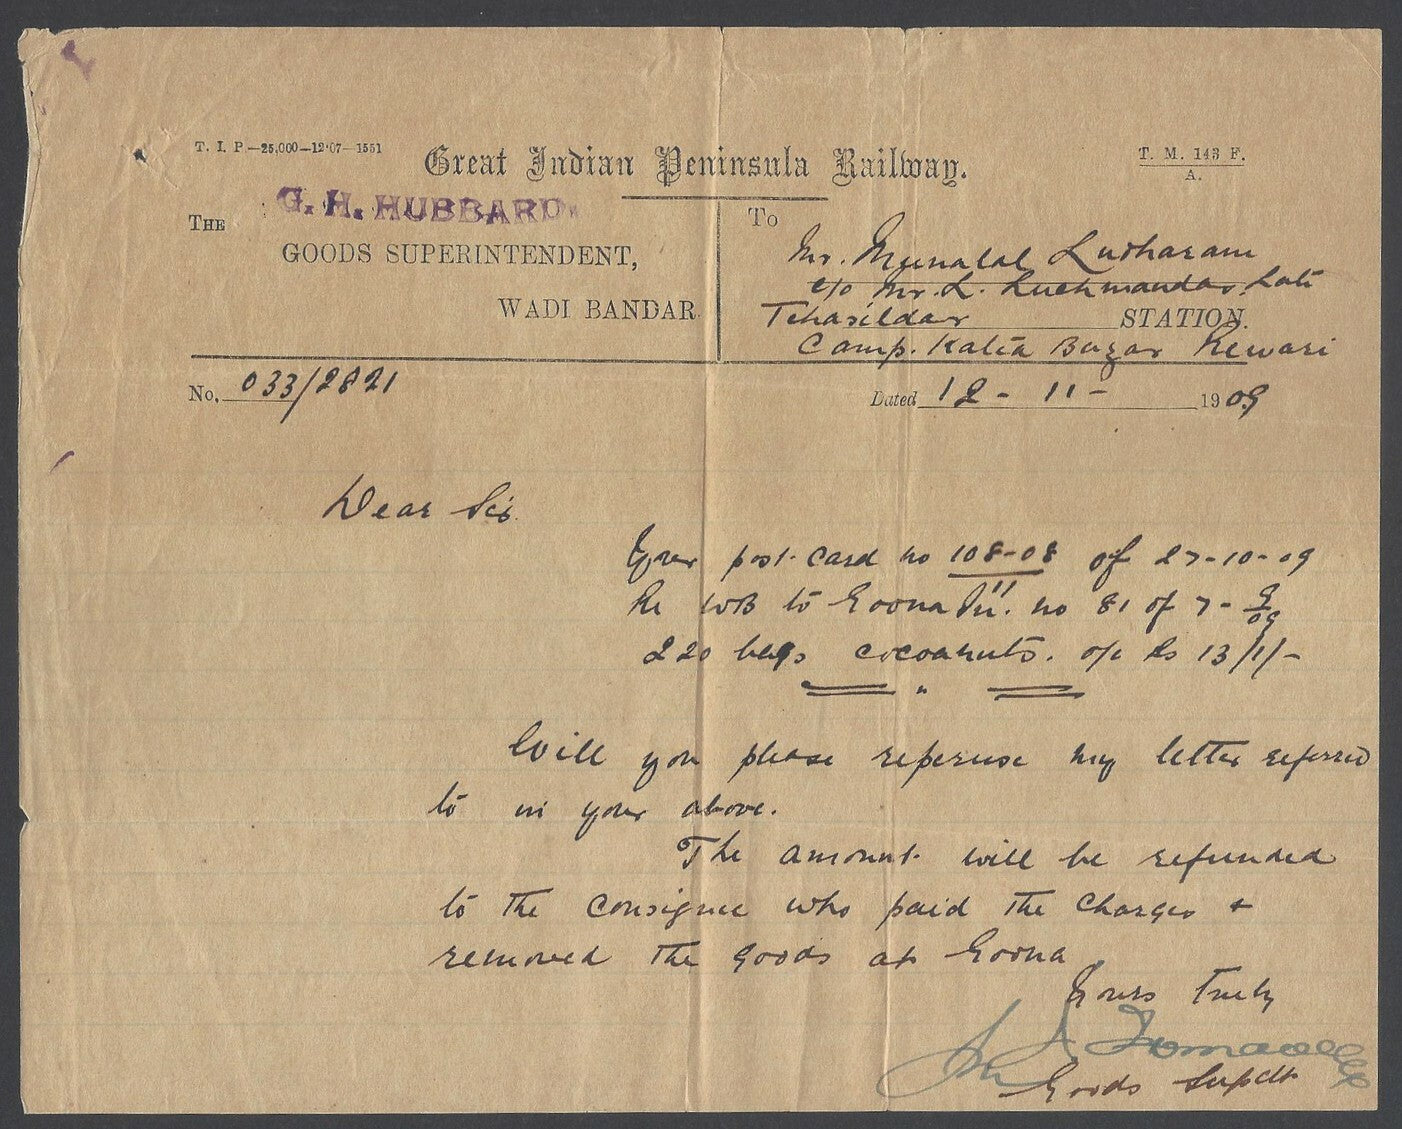 T. I. P.—25,000—12·07—1551
Great Indian Peninsula Railway.
T. M. 143 F.
A.
G. H. HUBBARD.
THE
GOODS SUPERINTENDENT,
WADI BANDAR.
To
Mr. Munalal Ludharam
c/o Mr. L. Luchmandas,
Tehasildar STATION.
Camp. Katia Bazar Rewari
No. 033/2821
Dated 12 - 11 - 1909
Dear Sir
Your post-card no 108-08 of 27-10-09
11
Re WB to Goona Inv. no 81 of 7-9/09
220 bags cocoanuts. o/c Rs 13/1/-
Will you please reperuse my letter referred
to in your above.
The amount will be refunded
to the consignee who paid the charges +
removed the goods at Goona
Yours Truly
Goods Supdt